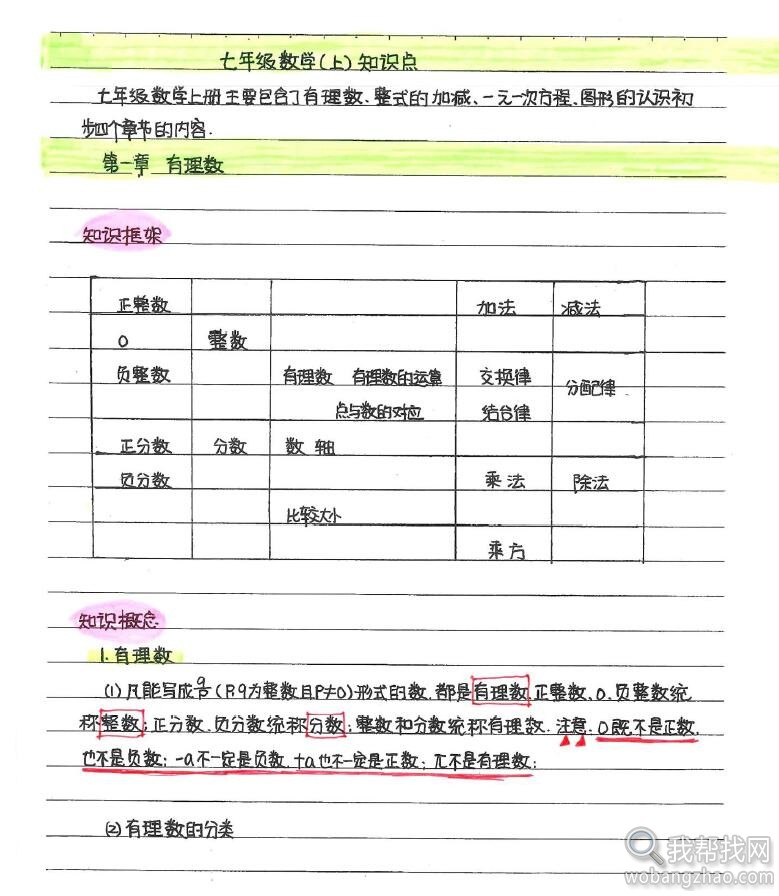 七年级数学(上)知识点
七年级数学上册主要包含了有理数、整式的加减、一元一次方程、图形的认识初
步四个章节的内容.
第一章 有理数
知识框架
正整数 加法 减法
0 整数
负整数 有理数 有理数的运算 交换律 分配律
点与数的对应 结合律
正分数 分数 数轴
负分数 乘法 除法
比较大小
乘方
知识概念
1.有理数
(1)凡能写成 (P.q为整数且P≠0)形式的数.都是有理数.正整数、0、负整数统
称整数;正分数、负分数统称分数;整数和分数统称有理数.注意:0既不是正数,
也不是负数;-a不一定是负数.+a也不一定是正数;π不是有理数;
(2)有理数的分类
我帮找网
wobangzhao.com